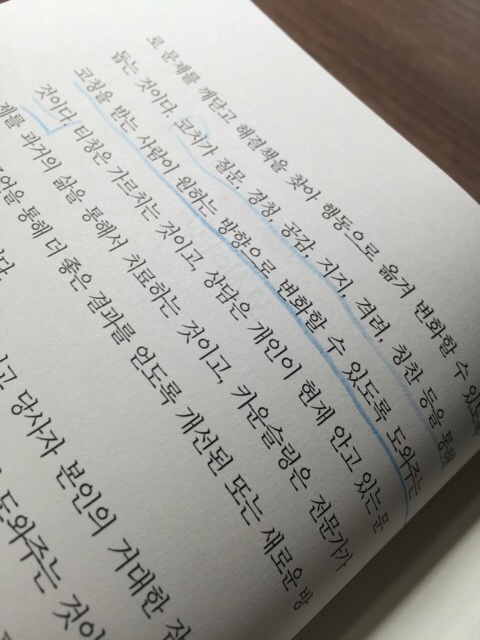 로 문제를 깨닫고 해결책을 찾아 행동으로 옮겨 변화할 수 있도록
돕는 것이다. 코치가 질문, 경청, 공감, 지지, 격려, 칭찬 등을 통해
코칭을 받는 사람이 원하는 방향으로 변화할 수 있도록 도와주는
것이다. 티칭은 가르치는 것이고, 상담은 개인이 현재 안고 있는 문
제를 과거의 삶을 통해서 치료하는 것이고, 카운슬링은 전문가가
통해 더 좋은 결과를 얻도록 개선된 또는 새로운 방
당사자 본인의 거대한 잠
도와주는 것이